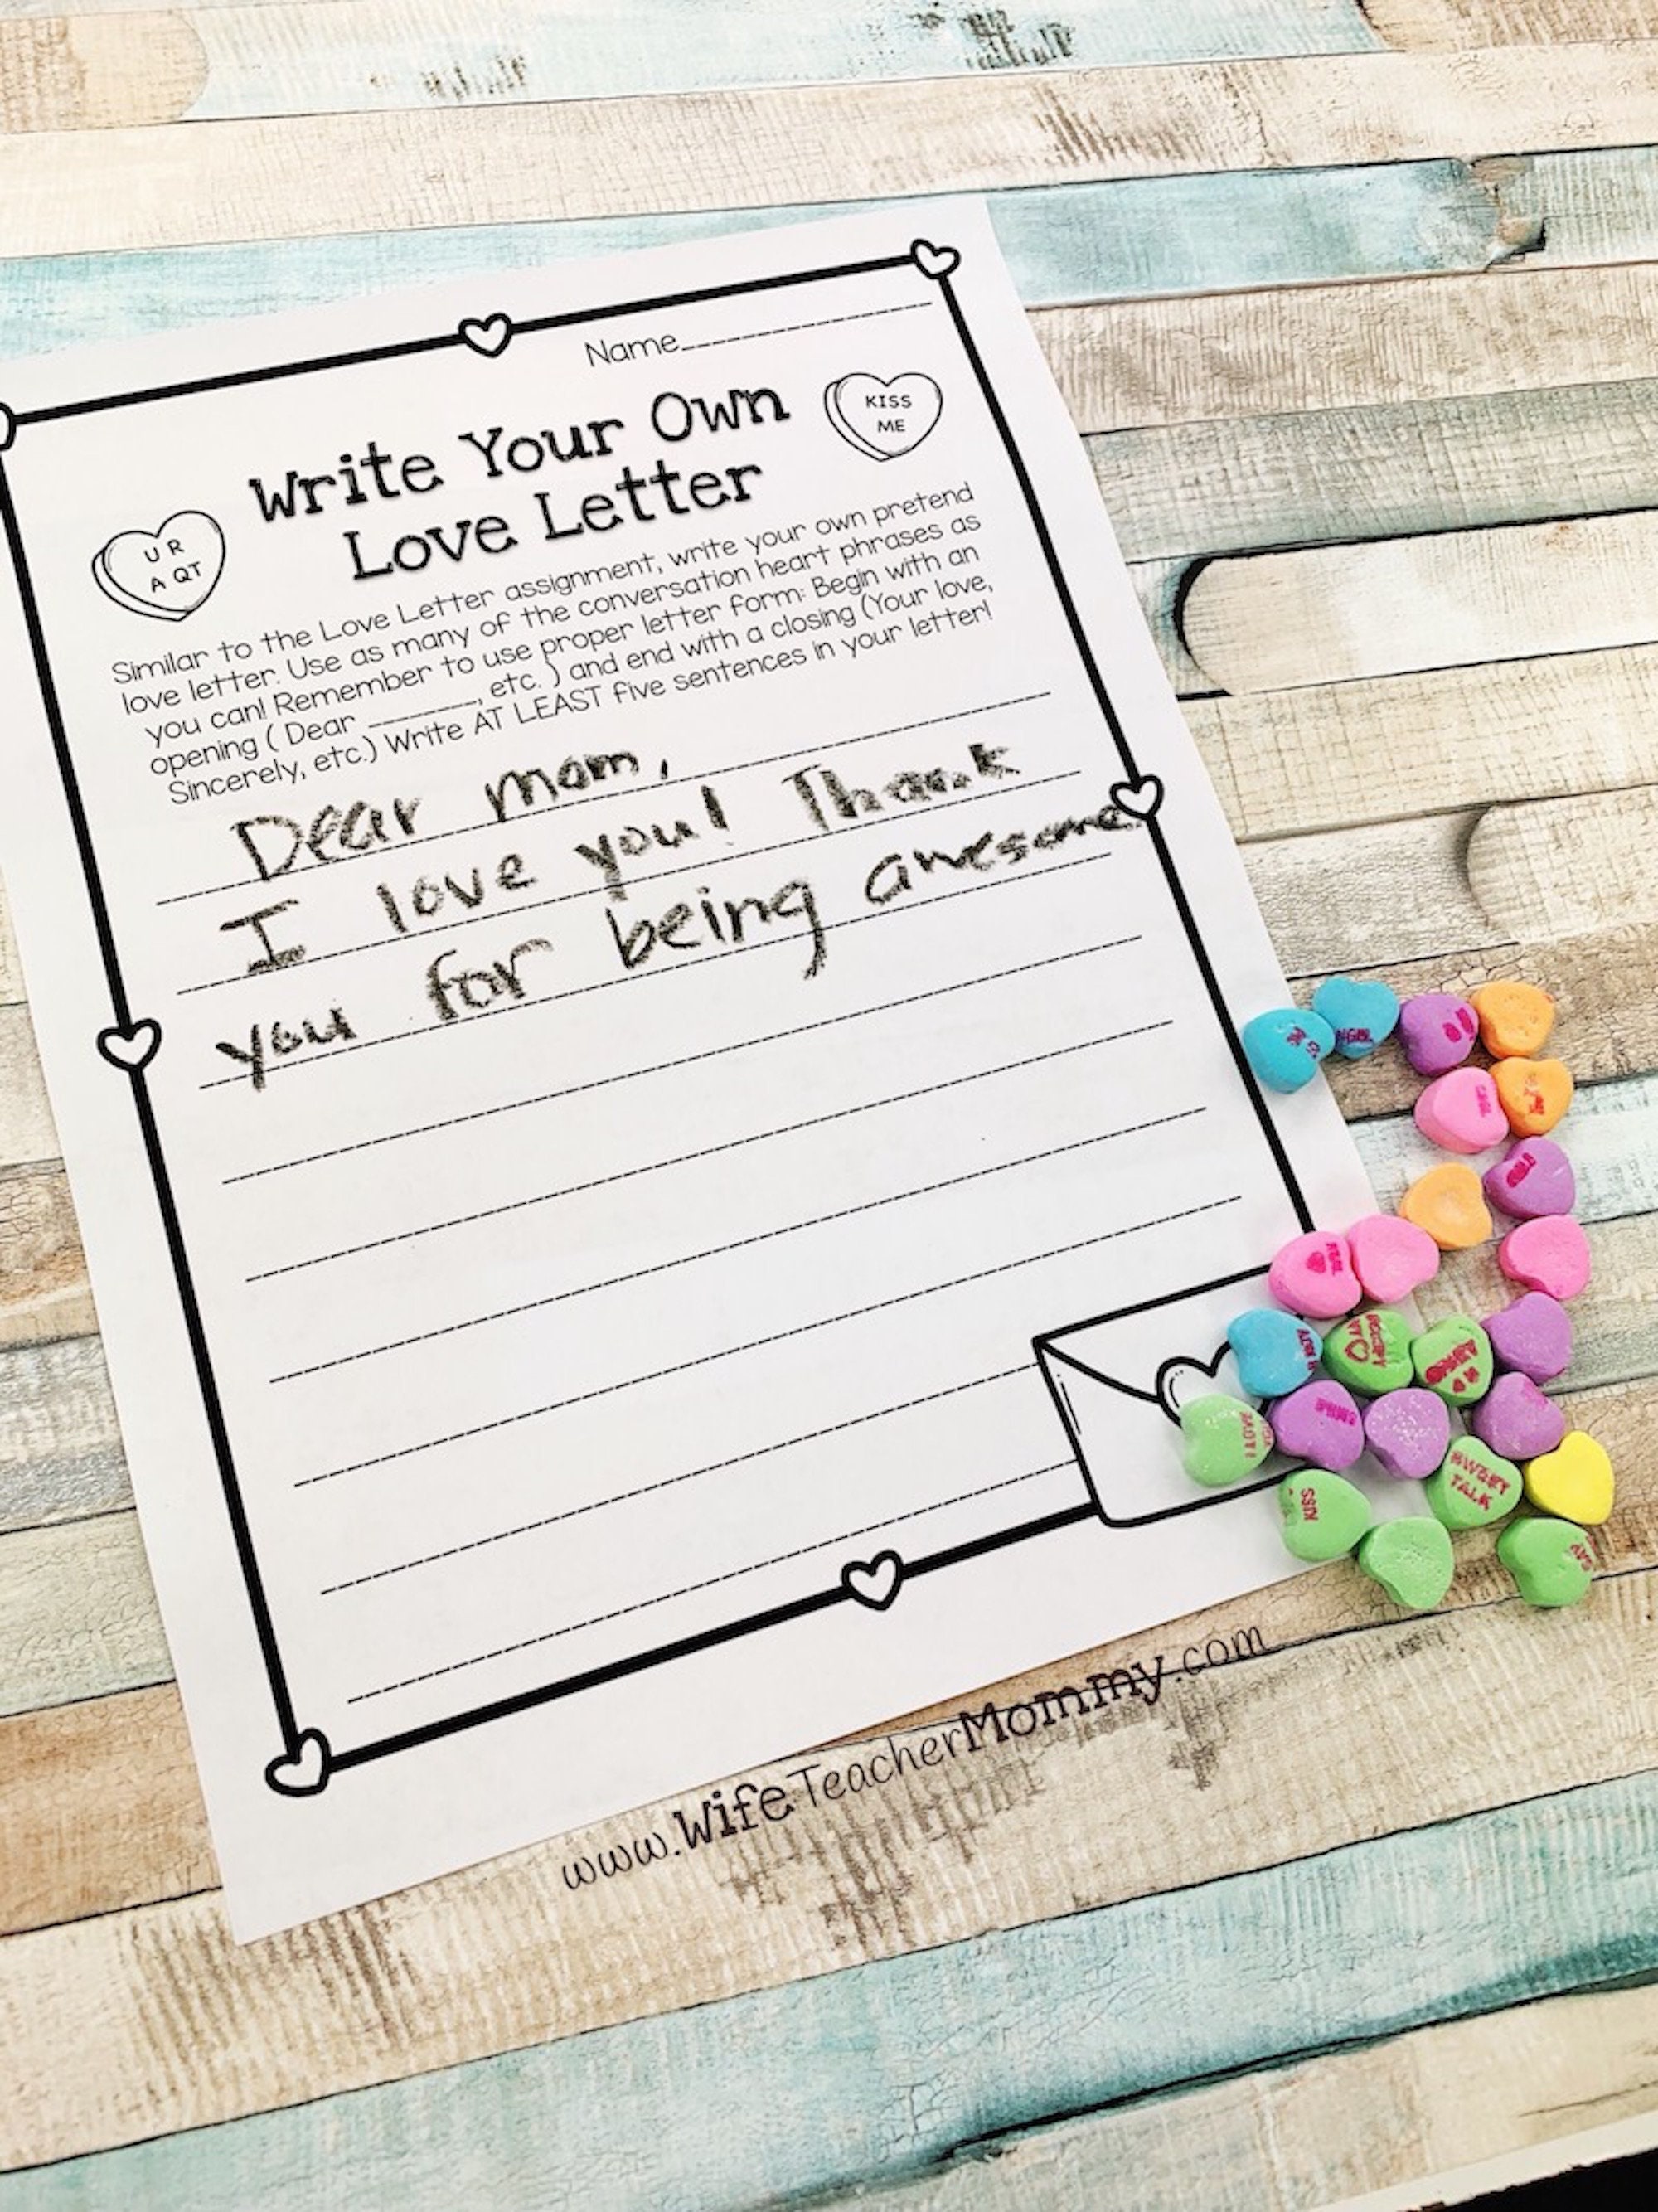 Name
Write Your Own
Love Letter
KISS
ME
U R
A QT
Similar to the Love Letter assignment, write your own pretend
love letter. Use as many of the conversation heart phrases as
you can! Remember to use proper letter form: Begin with an
opening ( Dear ________, etc. ) and end with a closing (Your love,
Sincerely, etc.) Write AT LEAST five sentences in your letter!
Dear mom,
I love you! Thank
you for being awesome
SWEET
TALK
KISS
www.WifeTeacherMommy.com